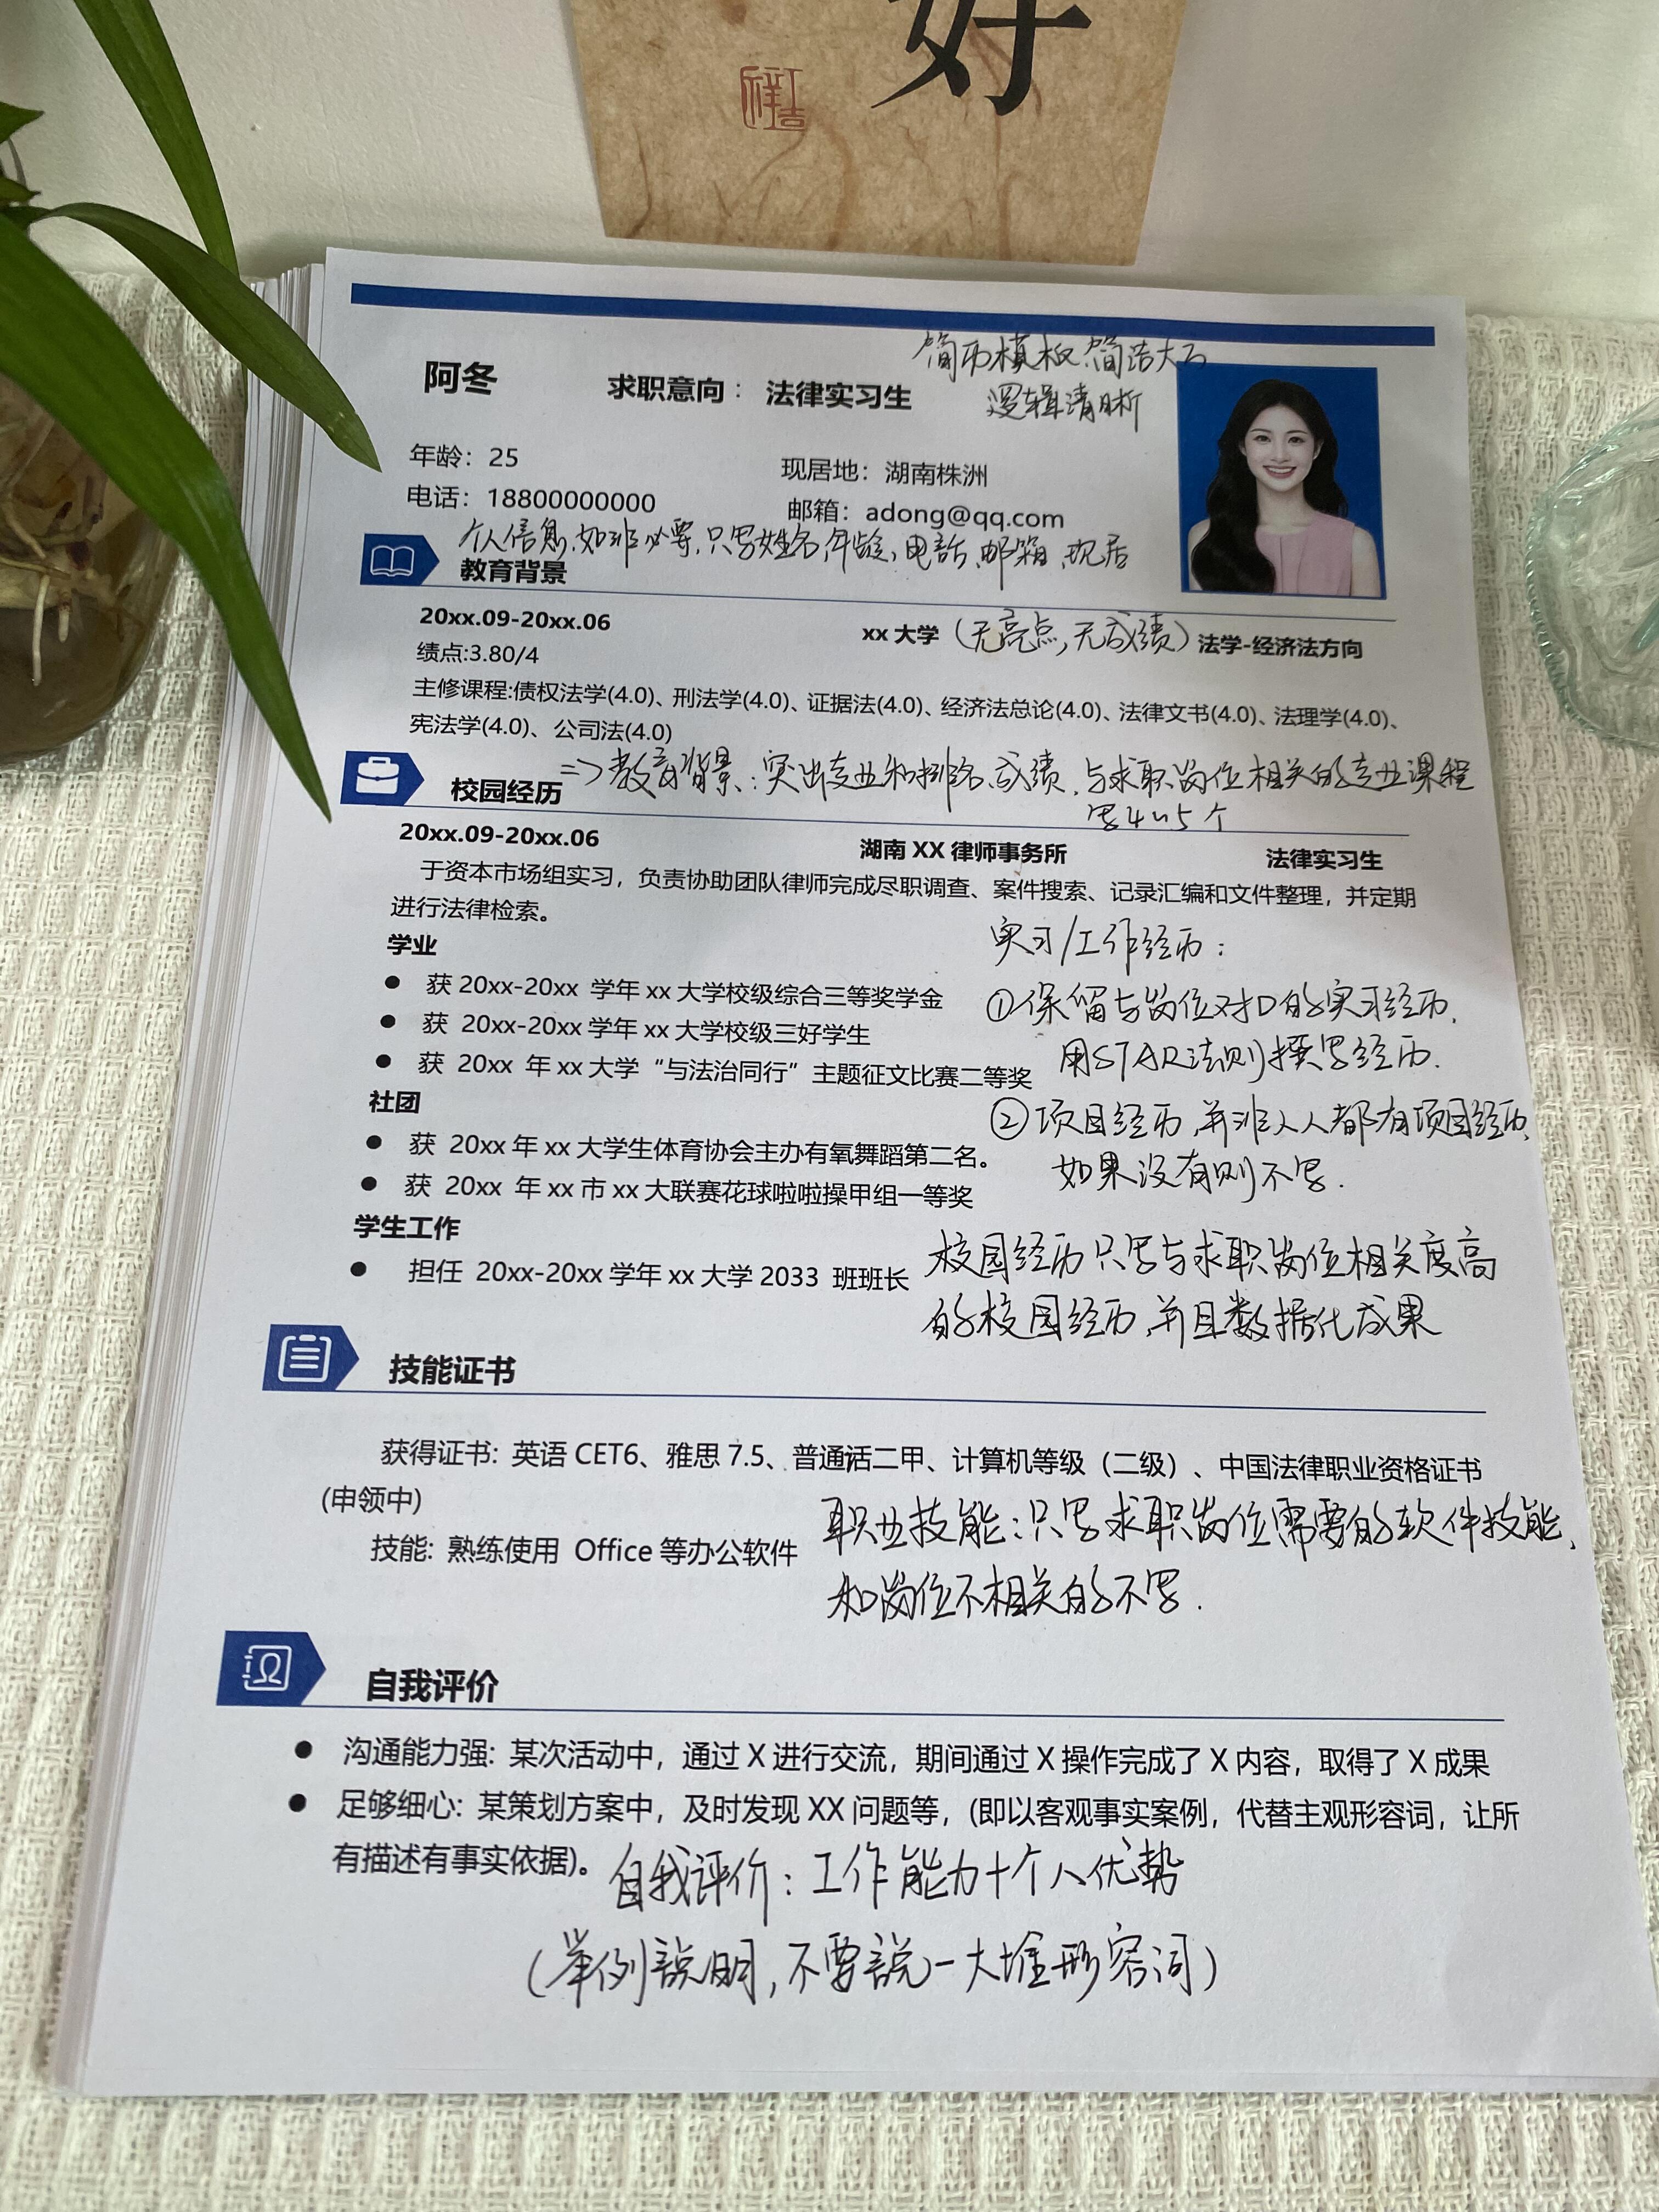 好
阿冬
求职意向：法律实习生
简历模板:简洁大方
逻辑清晰
年龄：25
现居地：湖南株洲
电话：18800000000
邮箱：adong@qq.com
个人信息,如非必要,只写姓名、年龄、电話、邮箱、现居
教育背景
20xx.09-20xx.06
xx 大学（无亮点,无成绩）法学-经济法方向
绩点:3.80/4
主修课程:债权法学(4.0)、刑法学(4.0)、证据法(4.0)、经济法总论(4.0)、法律文书(4.0)、法理学(4.0)、
宪法学(4.0)、公司法(4.0)
校园经历
=>教育背景：突出专业和排名、成绩,与求职岗位相关的专业课程
写4~5个
20xx.09-20xx.06
湖南 XX 律师事务所
法律实习生
于资本市场组实习，负责协助团队律师完成尽职调查、案件搜索、记录汇编和文件整理，并定期
进行法律检索。
实习/工作经历：
学业
● 获 20xx-20xx 学年 xx 大学校级综合三等奖学金
①保留与岗位对口的实习经历,
● 获 20xx-20xx 学年 xx 大学校级三好学生
用STAR法则撰写经历.
● 获 20xx 年 xx 大学“与法治同行”主题征文比赛二等奖
社团
②项目经历,并非人人都有项目经历,
● 获 20xx 年 xx 大学生体育协会主办有氧舞蹈第二名。
如果没有则不写.
● 获 20xx 年 xx 市 xx 大联赛花球啦啦操甲组一等奖
学生工作
● 担任 20xx-20xx 学年 xx 大学 2033 班班长
校园经历只写与求职岗位相关度高
的校园经历,并且数据化成果
技能证书
获得证书: 英语 CET6、雅思 7.5、普通话二甲、计算机等级（二级）、中国法律职业资格证书
(申领中)
技能: 熟练使用 Office 等办公软件
职业技能：只写求职岗位需要的软件技能,
和岗位不相关的不写.
自我评价
● 沟通能力强: 某次活动中，通过 X 进行交流，期间通过 X 操作完成了 X 内容，取得了 X 成果
● 足够细心: 某策划方案中，及时发现 XX 问题等，(即以客观事实案例，代替主观形容词，让所
有描述有事实依据)。
自我评价：工作能力+个人优势
（举例說明,不要說一大堆形容词）